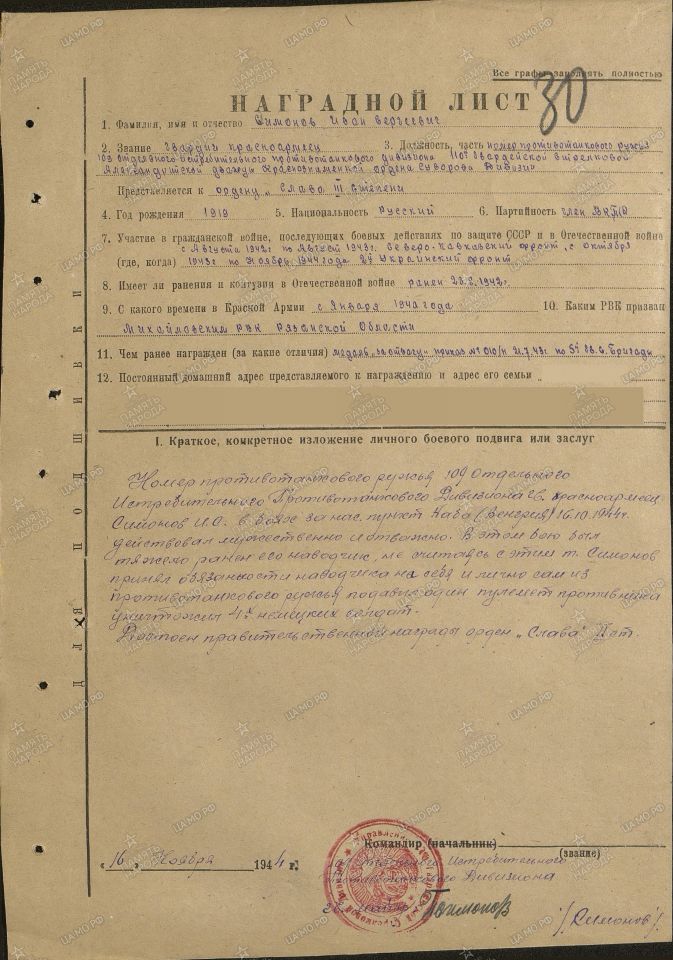 Все графы заполнять полностью
НАГРАДНОЙ ЛИСТ
30
1. Фамилия, имя и отчество Симонов Иван Сергеевич
2. Звание Гвардии красноармеец 3. Должность, часть номер противотанкового ружья
109 отдельного истребительного противотанкового дивизиона 110й Гвардейской стрелковой
Александрийской дважды Краснознаменной ордена Суворова Дивизии
Представляется к ордену "Слава III степени
4. Год рождения 1919 5. Национальность Русский 6. Партийность член ВКП(б)
7. Участие в гражданской войне, последующих боевых действиях по защите СССР и в Отечественной войне
с Августа 1942г по Август 1943г. Северо-Кавказский фронт, с октября
(где, когда) 1943г по Ноябрь 1944 года 2й Украинский фронт
8. Имеет ли ранения и контузии в Отечественной войне ранен 1942г.
9. С какого времени в Красной Армии с Января 1940 года 10. Каким РВК призван
Михайловским РВК Рязанской Области
11. Чем ранее награжден (за какие отличия) медаль "за отвагу" приказ № 010/н 21.7.43г по Бригады
12. Постоянный домашний адрес представляемого к награждению и адрес его семьи
I. Краткое, конкретное изложение личного боевого подвига или заслуг
Номер противотанкового ружья 109 Отдельного
Истребительного Противотанкового Дивизиона гв. красноармеец
Симонов И.С. в боях за нас. пункт Каба (Венгрия) 16.10.1944г.
действовал мужественно и отважно. В этом бою был
тяжело ранен его наводчик, не считаясь с этим т. Симонов
принял обязанности наводчика на себя и лично сам из
противотанкового ружья подавил один пулемет противника
уничтожил 4х немецких солдат.
Достоин правительственной награды орден "Слава" III ст.
Командир (начальник)
(звание)
"16" Ноября 1944 г.
109 Отдельного Истребительного
Противотанкового Дивизиона
гв. майор
ДЛЯ ПОДШИВКИ
ПАМЯТЬ НАРОДА
ЦАМО.РФ